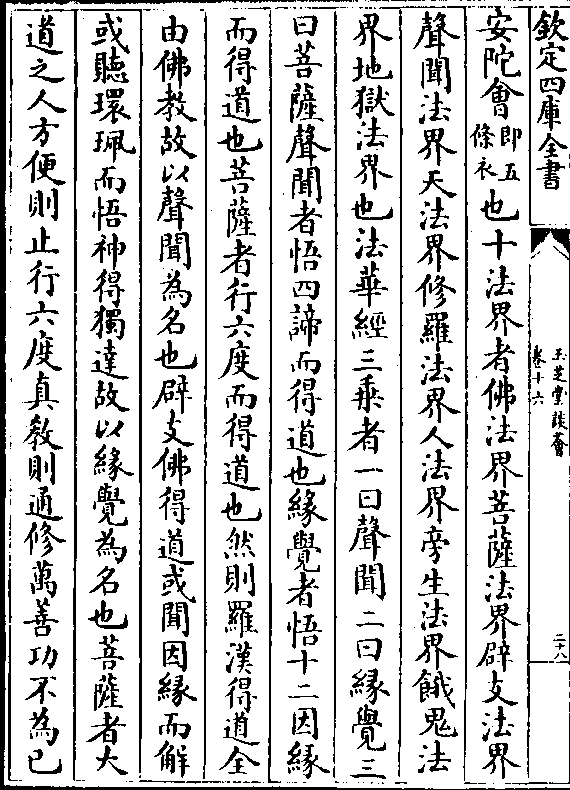 欽定四庫全書
玉芝堂談薈
卷十六
二十八
安陀會即五條衣也十法界者佛法界菩薩法界辟支法界
聲聞法界天法界修羅法界人法界旁生法界餓鬼法
界地獄法界也法華經三乘者一曰聲聞二曰緣覺三
曰菩薩聲聞者悟四諦而得道也緣覺者悟十二因緣
而得道也菩薩者行六度而得道也然則羅漢得道全
由佛教故以聲聞為名也辟支佛得道或聞因緣而解
或聽環珮而悟神得獨達故以緣覺為名也菩薩者大
道之人方便則止行六度真教則通修萬善功不為已